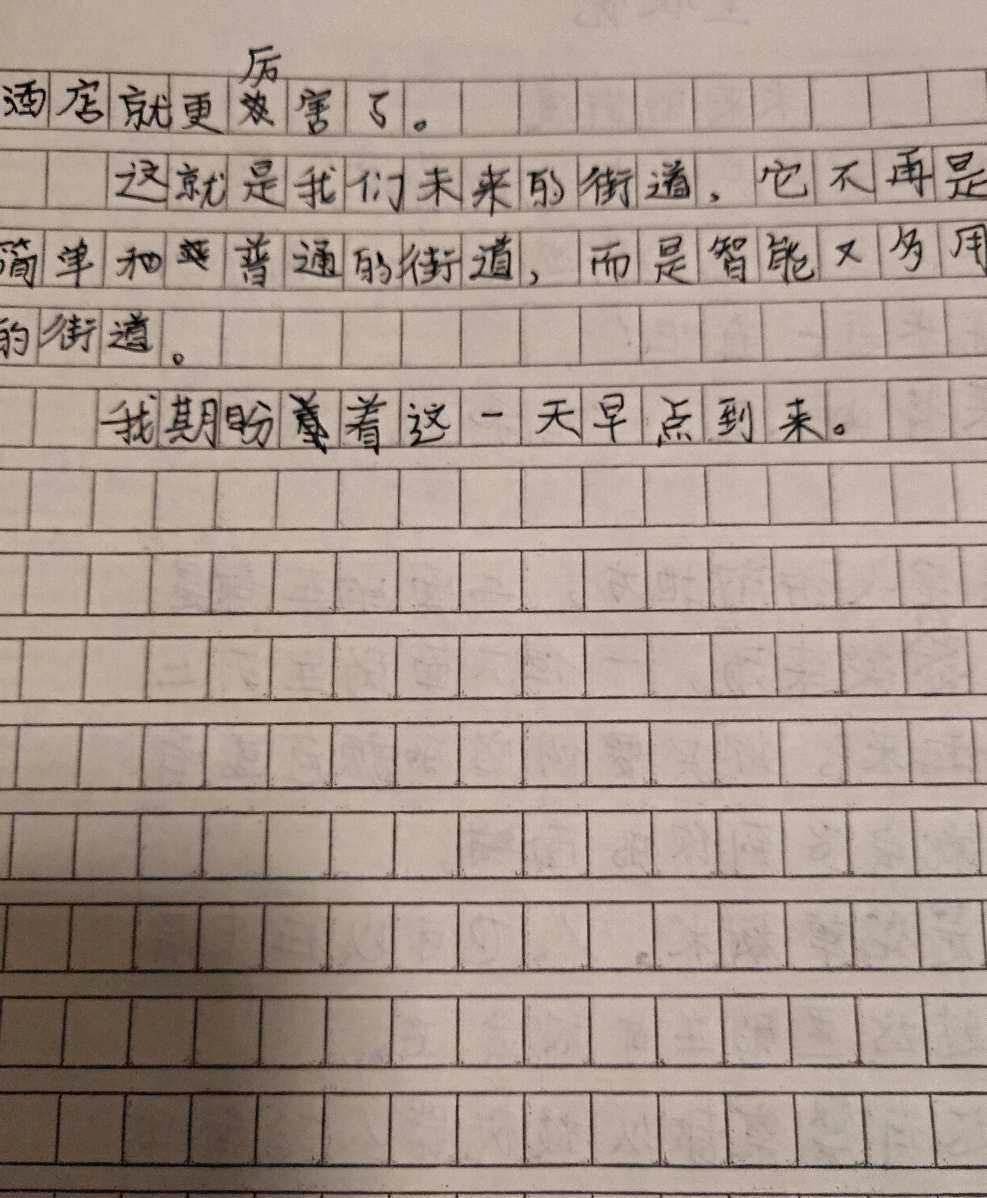 酒店就更厉害了。
这就是我们未来的街道。它不再是
简单和普通的街道，而是智能又多用
的街道。
我期盼着这一天早点到来。